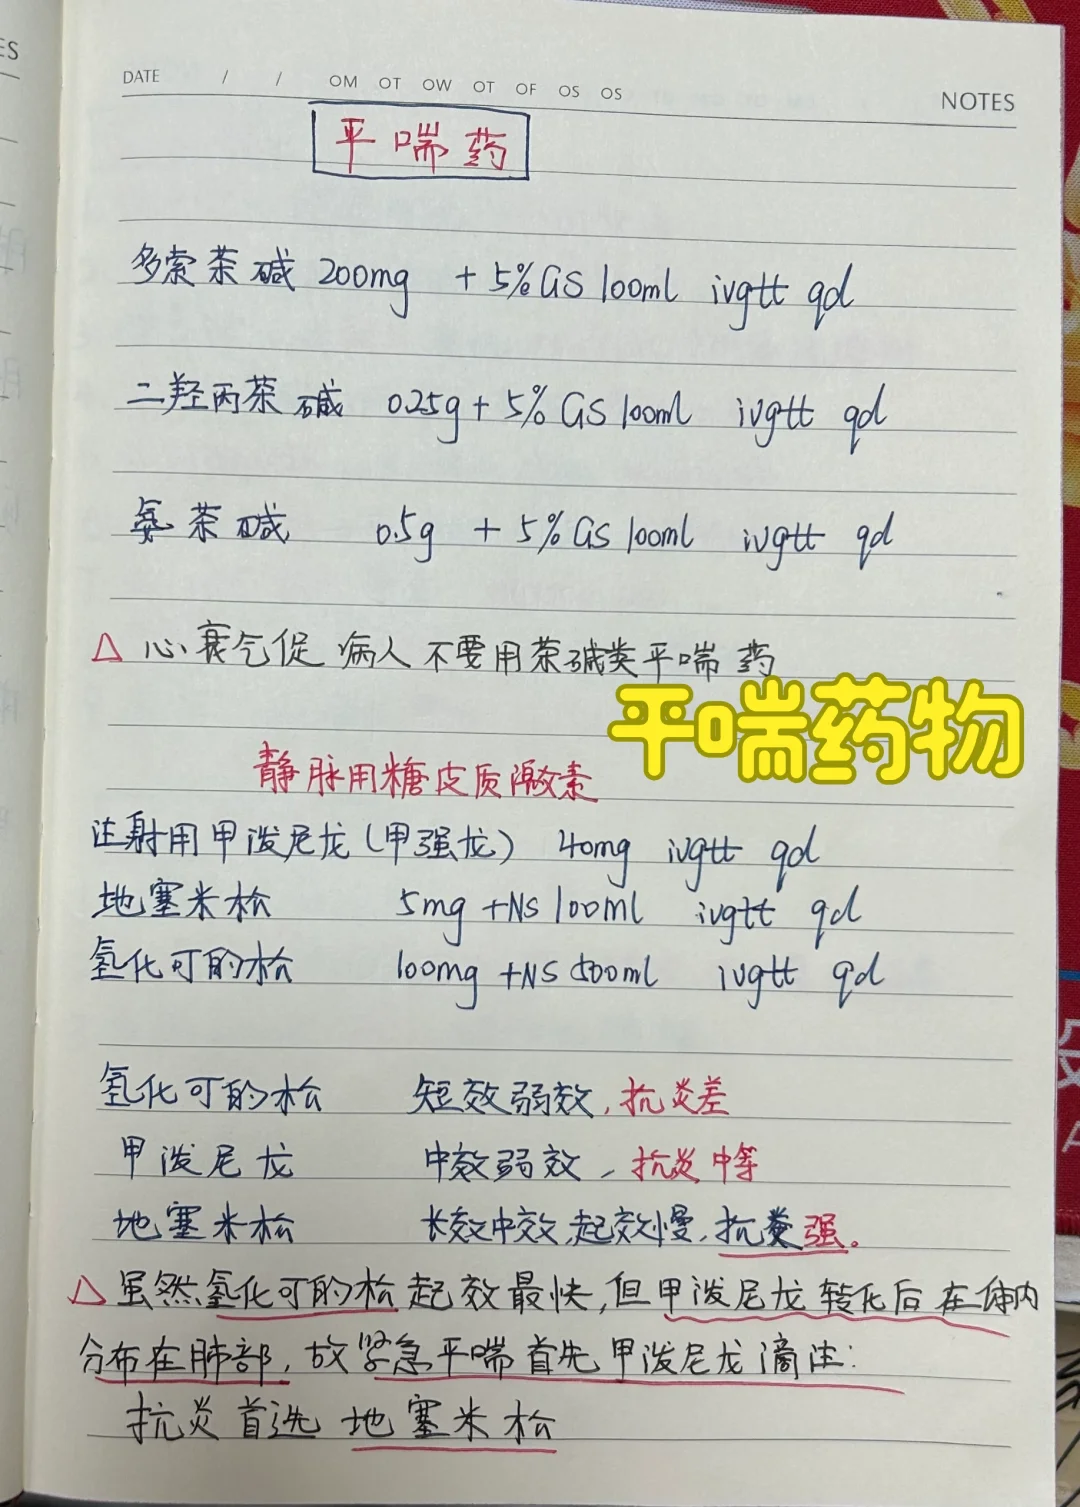 ES
DATE / / OM OT OW OT OF OS OS
NOTES
平喘药
多索茶碱 200mg +5%GS 100ml ivgtt qd
二羟丙茶碱 0.25g+5%GS 100ml ivgtt qd
氨茶碱 0.5g +5%GS 100ml ivgtt qd
△ 心衰气促病人不要用茶碱类平喘药
平喘药物
静脉用糖皮质激素
注射用甲泼尼龙(甲强龙) 40mg ivgtt qd
地塞米松 5mg+NS 100ml ivgtt qd
氢化可的松 100mg+NS 500ml ivgtt qd
氢化可的松 短效弱效,抗炎差
甲泼尼龙 中效弱效,抗炎中等
地塞米松 长效中效,起效慢,抗炎强。
△ 虽然氢化可的松起效最快,但甲泼尼龙转化后在体内
分布在肺部,故紧急平喘首先甲泼尼龙滴注:
抗炎首选地塞米松